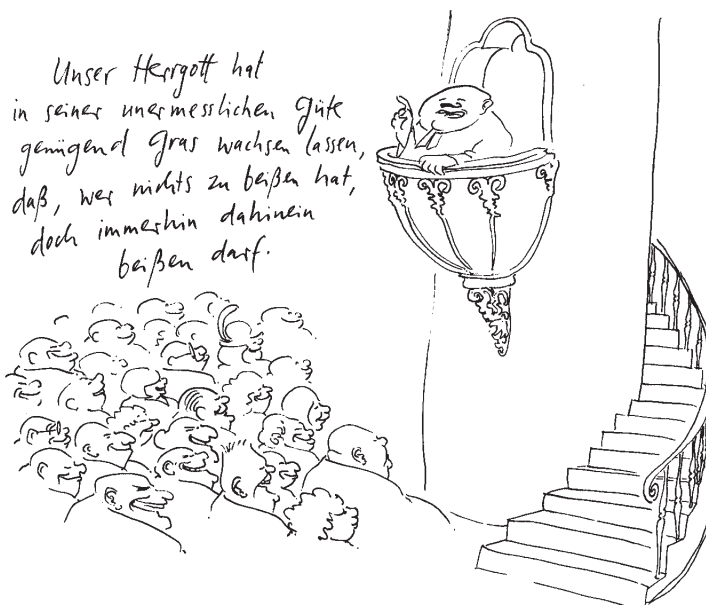 Unser Herrgott hat
in seiner unermesslichen Güte
genügend Gras wachsen lassen,
daß, wer nichts zu beißen hat,
doch immerhin dahinein
beißen darf.